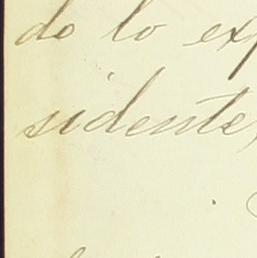 do lo ex
sidente,